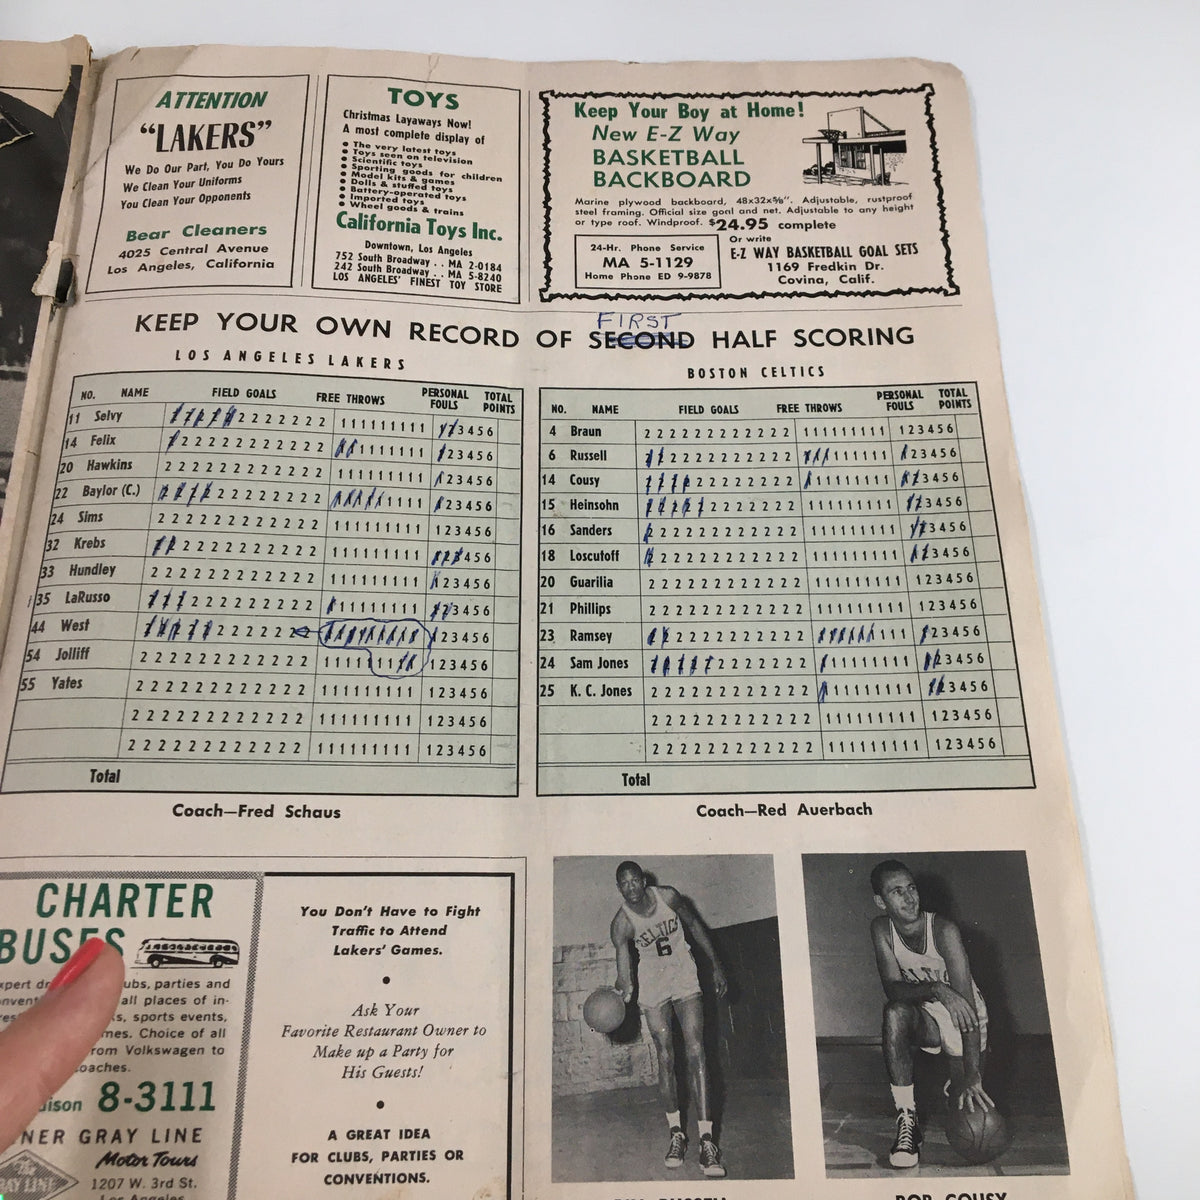 ATTENTION
"LAKERS"
We Do Our Part, You Do Yours
We Clean Your Uniforms
You Clean Your Opponents
Bear Cleaners
4025 Central Avenue
Los Angeles, California
TOYS
Christmas Layaways Now!
A most complete display of
● The very latest toys
● Toys seen on television
● Scientific toys
● Sporting goods for children
● Model kits & games
● Dolls & stuffed toys
● Battery-operated toys
● Imported toys
● Wheel goods & trains
California Toys Inc.
Downtown, Los Angeles
752 South Broadway . . MA 2-0184
242 South Broadway . . MA 5-8240
LOS ANGELES' FINEST TOY STORE
Keep Your Boy at Home!
New E-Z Way
BASKETBALL
BACKBOARD
Marine plywood backboard, 48x32x⅝". Adjustable, rustproof
steel framing. Official size goal and net. Adjustable to any height
or type roof. Windproof. $24.95 complete
24-Hr. Phone Service
MA 5-1129
Home Phone ED 9-9878
Or write
E-Z WAY BASKETBALL GOAL SETS
1169 Fredkin Dr.
Covina, Calif.
FIRST
KEEP YOUR OWN RECORD OF SECOND HALF SCORING
LOS ANGELES LAKERS
NO. NAME FIELD GOALS FREE THROWS PERSONAL FOULS TOTAL POINTS
11 Selvy 2 2 2 2 2 2 2 2 2 2 2 2 2 1 1 1 1 1 1 1 1 1 1 2 3 4 5 6
14 Felix 2 2 2 2 2 2 2 2 2 2 2 2 2 1 1 1 1 1 1 1 1 1 1 2 3 4 5 6
20 Hawkins 2 2 2 2 2 2 2 2 2 2 2 2 2 1 1 1 1 1 1 1 1 1 1 2 3 4 5 6
22 Baylor (C.) 2 2 2 2 2 2 2 2 2 2 2 2 2 1 1 1 1 1 1 1 1 1 1 2 3 4 5 6
24 Sims 2 2 2 2 2 2 2 2 2 2 2 2 2 1 1 1 1 1 1 1 1 1 1 2 3 4 5 6
32 Krebs 2 2 2 2 2 2 2 2 2 2 2 2 2 1 1 1 1 1 1 1 1 1 1 2 3 4 5 6
33 Hundley 2 2 2 2 2 2 2 2 2 2 2 2 2 1 1 1 1 1 1 1 1 1 1 2 3 4 5 6
35 LaRusso 2 2 2 2 2 2 2 2 2 2 2 2 2 1 1 1 1 1 1 1 1 1 1 2 3 4 5 6
44 West 2 2 2 2 2 2 2 2 2 2 2 2 2 1 1 1 1 1 1 1 1 1 1 2 3 4 5 6
54 Jolliff 2 2 2 2 2 2 2 2 2 2 2 2 2 1 1 1 1 1 1 1 1 1 1 2 3 4 5 6
55 Yates 2 2 2 2 2 2 2 2 2 2 2 2 2 1 1 1 1 1 1 1 1 1 1 2 3 4 5 6
2 2 2 2 2 2 2 2 2 2 2 2 2 1 1 1 1 1 1 1 1 1 1 2 3 4 5 6
2 2 2 2 2 2 2 2 2 2 2 2 2 1 1 1 1 1 1 1 1 1 1 2 3 4 5 6
Total
Coach—Fred Schaus
BOSTON CELTICS
NO. NAME FIELD GOALS FREE THROWS PERSONAL FOULS TOTAL POINTS
4 Braun 2 2 2 2 2 2 2 2 2 2 2 2 2 1 1 1 1 1 1 1 1 1 1 2 3 4 5 6
6 Russell 2 2 2 2 2 2 2 2 2 2 2 2 2 1 1 1 1 1 1 1 1 1 1 2 3 4 5 6
14 Cousy 2 2 2 2 2 2 2 2 2 2 2 2 2 1 1 1 1 1 1 1 1 1 1 2 3 4 5 6
15 Heinsohn 2 2 2 2 2 2 2 2 2 2 2 2 2 1 1 1 1 1 1 1 1 1 1 2 3 4 5 6
16 Sanders 2 2 2 2 2 2 2 2 2 2 2 2 2 1 1 1 1 1 1 1 1 1 1 2 3 4 5 6
18 Loscutoff 2 2 2 2 2 2 2 2 2 2 2 2 2 1 1 1 1 1 1 1 1 1 1 2 3 4 5 6
20 Guarilia 2 2 2 2 2 2 2 2 2 2 2 2 2 1 1 1 1 1 1 1 1 1 1 2 3 4 5 6
21 Phillips 2 2 2 2 2 2 2 2 2 2 2 2 2 1 1 1 1 1 1 1 1 1 1 2 3 4 5 6
23 Ramsey 2 2 2 2 2 2 2 2 2 2 2 2 2 1 1 1 1 1 1 1 1 1 1 2 3 4 5 6
24 Sam Jones 2 2 2 2 2 2 2 2 2 2 2 2 2 1 1 1 1 1 1 1 1 1 1 2 3 4 5 6
25 K. C. Jones 2 2 2 2 2 2 2 2 2 2 2 2 2 1 1 1 1 1 1 1 1 1 1 2 3 4 5 6
2 2 2 2 2 2 2 2 2 2 2 2 2 1 1 1 1 1 1 1 1 1 1 2 3 4 5 6
2 2 2 2 2 2 2 2 2 2 2 2 2 1 1 1 1 1 1 1 1 1 1 2 3 4 5 6
Total
Coach—Red Auerbach
CHARTER
BUSES
ubs, parties and
all places of in-
s, sports events,
mes. Choice of all
rom Volkswagen to
oaches.
8-3111
NER GRAY LINE
Motor Tours
1207 W. 3rd St.
Los Angeles
You Don't Have to Fight
Traffic to Attend
Lakers' Games.
●
Ask Your
Favorite Restaurant Owner to
Make up a Party for
His Guests!
●
A GREAT IDEA
FOR CLUBS, PARTIES OR
CONVENTIONS.
CELTICS
6
BOB COUSY